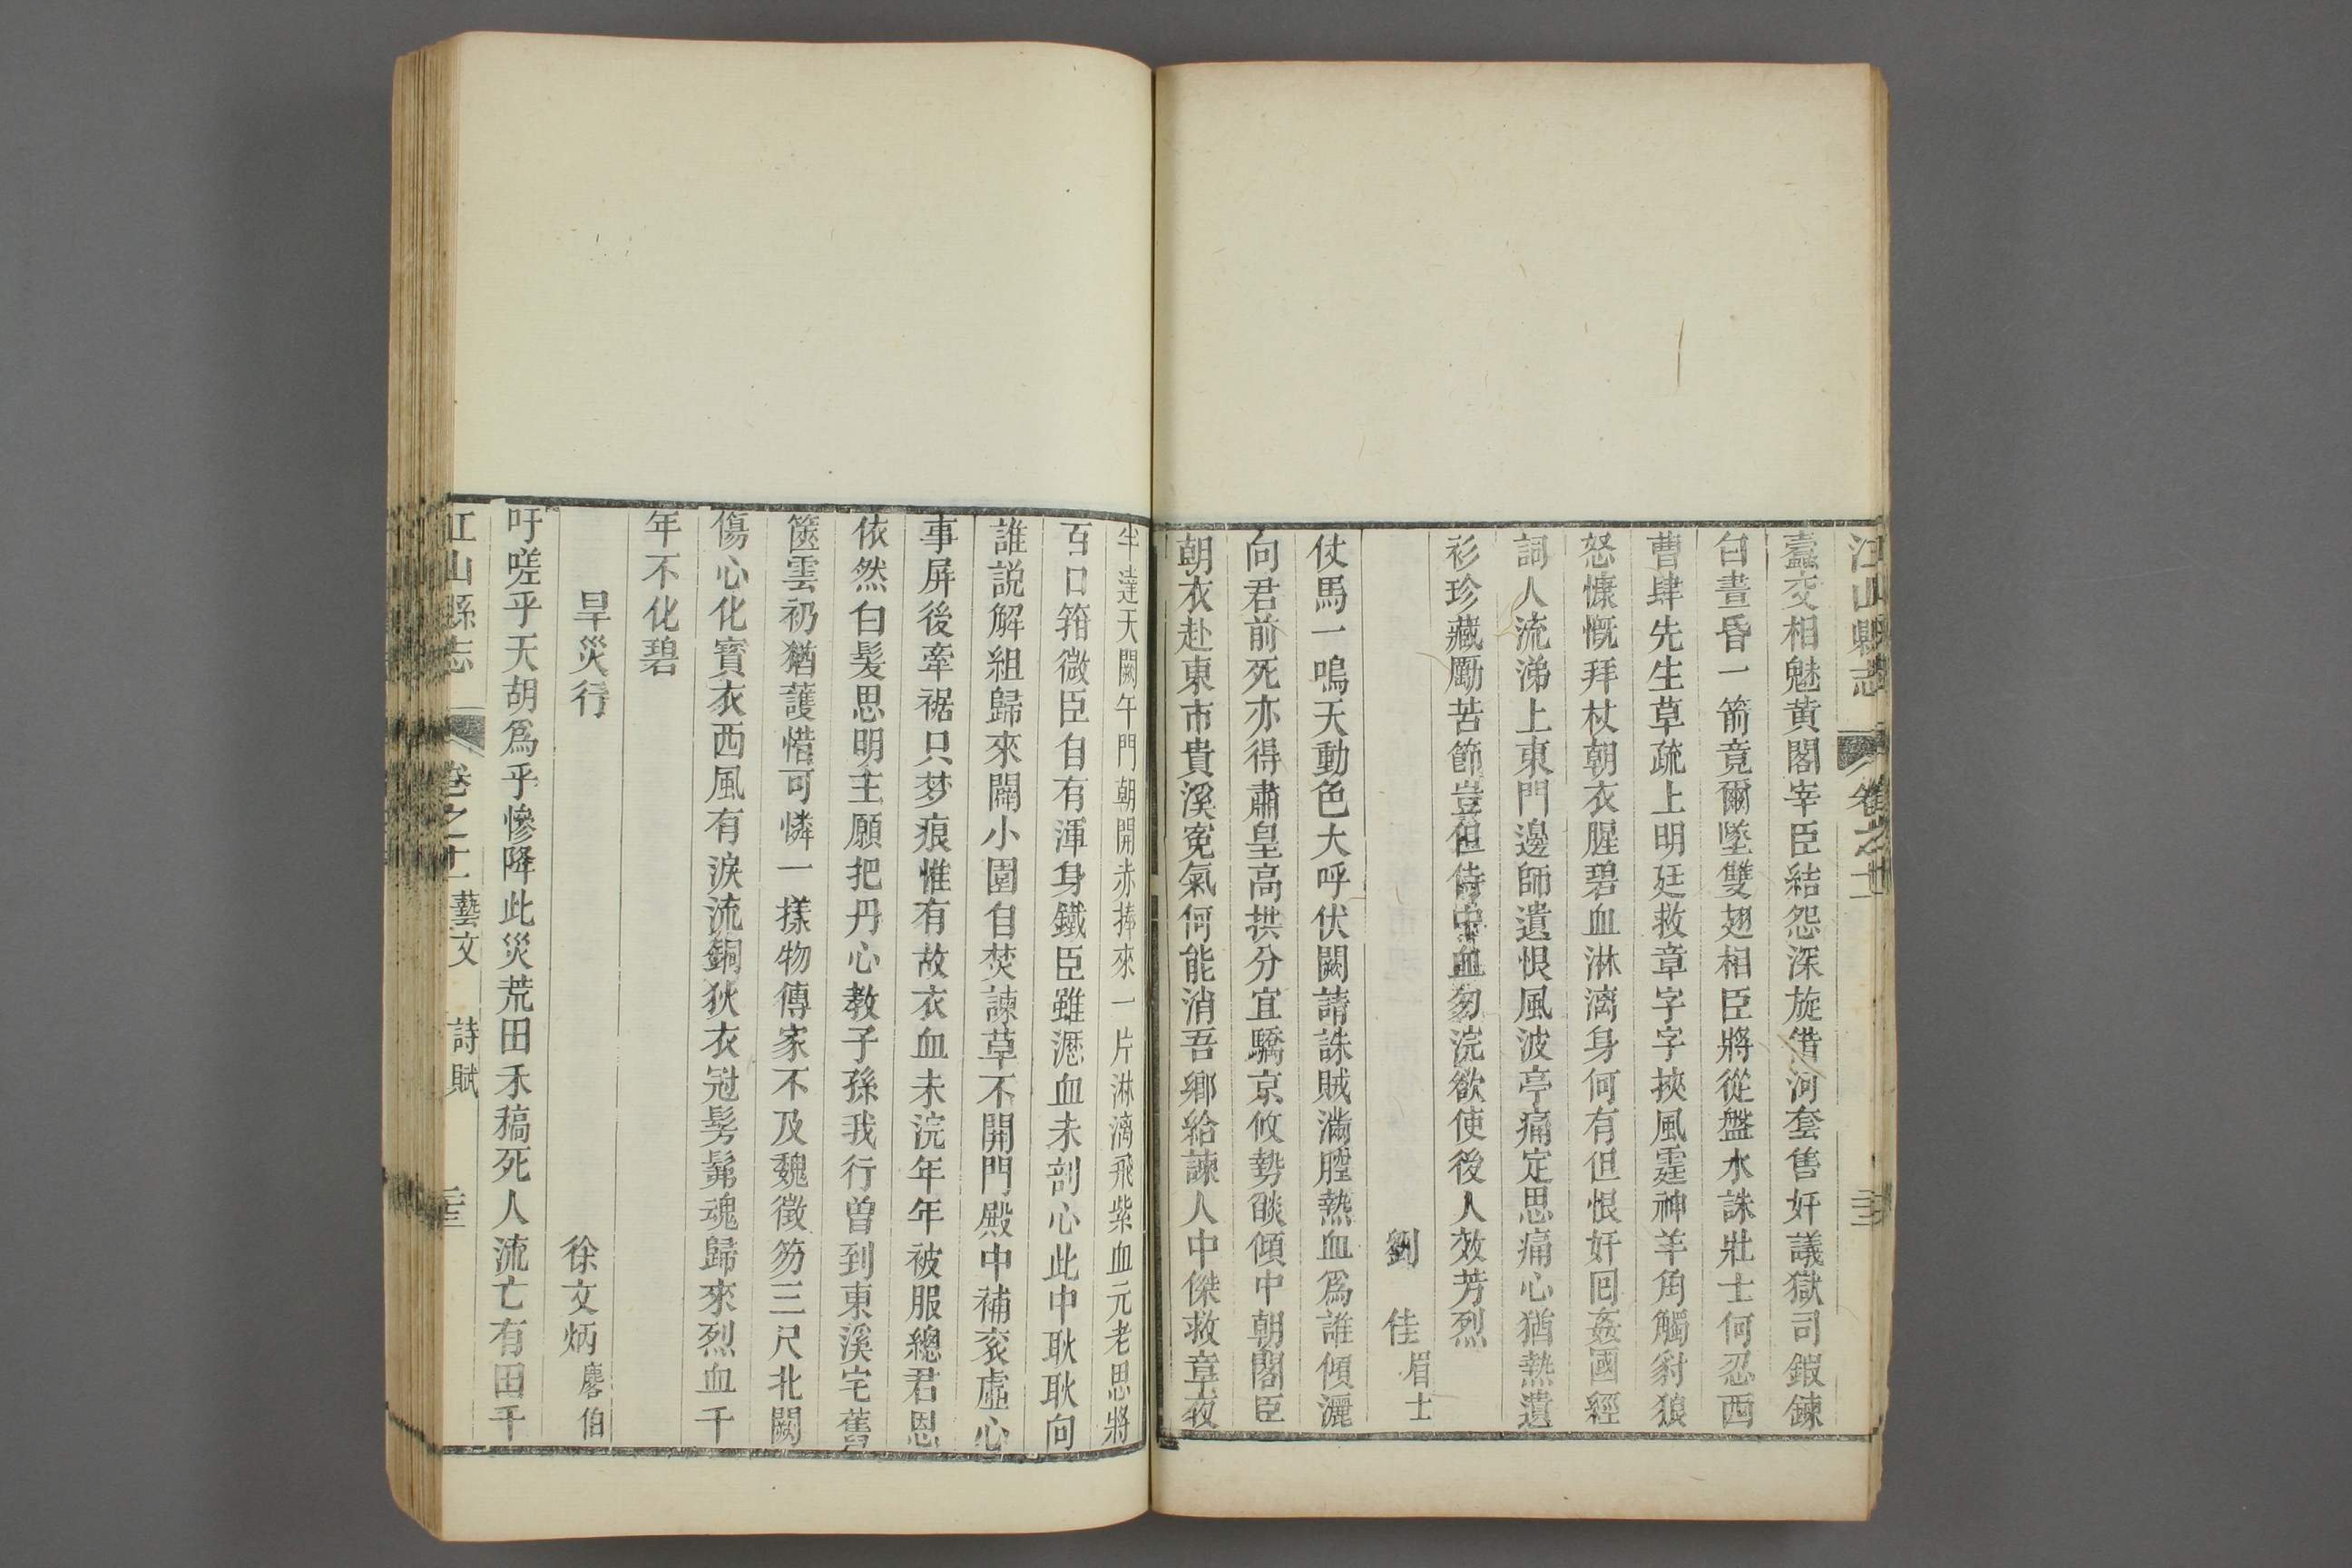 江山縣志 卷之十二
蠹交相魅黄閣宰臣結怨深旋借河套售奸議獄司鍜鍊
白晝昏一箭竟爾墜雙翅相臣將從盤水誅壯士何忍西
曹肆先生草疏上明廷救章字字挾風霆神羊角觸豺狼
怒慷慨拜杖朝衣腥碧血淋漓身何有但恨奸囘姦國經
詞人流涕上東門邊師遺恨風波亭痛定思痛心猶熱遺
衫珍藏勵苦節豈但侍中血匆浣欲使後人效芳烈
劉佳眉士
仗馬一鳴天動色大呼伏闕請誅賊滿膛熱血爲誰傾灑
向君前死亦得肅皇高拱分宜驕京攸勢燄傾中朝閣臣
朝衣赴東市貴溪寃氣何能消吾鄉給諫人中傑救章夜
半達天闕午門朝開赤捧來一片淋漓飛紫血元老思將
百口箝微臣自有渾身鐵臣雖瀝血未剖心此中耿耿向
誰説解組歸來闢小園自焚諫草不開門殿中補衮虛心
事屏後牽裾只梦痕惟有故衣血未浣年年被服總君恩
依然白髮思明主願把丹心教子孫我行曽到東溪宅舊
篋雲礽猶護惜可憐一㨾物傳家不及魏徵笏三尺北闕
傷心化寳衣西風有淚流銅狄衣冠髣髴魂歸來烈血千
年不化碧
旱災行
徐文炳麐伯
吁嗟乎天胡爲乎慘降此災荒田禾稿死人流亡有田千
江山縣志 卷之十二 藝文 詩賦 二十三